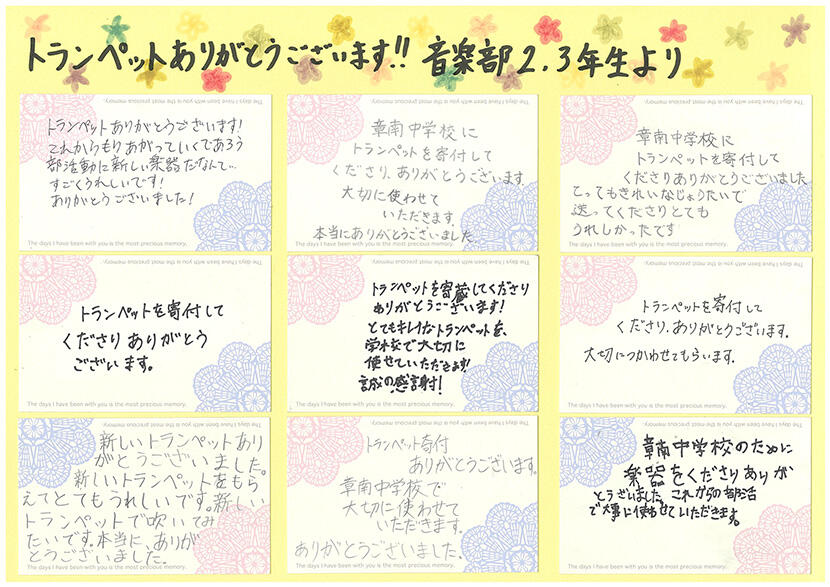 トランペットありがとうございます!! 音楽部2.3年生より
トランペットありがとうございます!
これからもりあがっていくであろう
部活動に新しい楽器だなんて…
すごくうれしいです!
ありがとうございました!
The days I have been with you is the most precious memory.
The days I have been with you is the most precious memory.
章南中学校に
トランペットを寄付して
くださり、ありがとうございます。
大切に使わせて
いただきます。
本当にありがとうございました。
The days I have been with you is the most precious memory.
The days I have been with you is the most precious memory.
章南中学校に
トランペットを寄付して
くださりありがとうございました
とってもきれいなじょうたいで
送ってくださりとても
うれしかったです
The days I have been with you is the most precious memory.
The days I have been with you is the most precious memory.
トランペットを寄付して
くださり ありがとう
ございます。
The days I have been with you is the most precious memory.
The days I have been with you is the most precious memory.
トランペットを寄蔵してくださり
ありがとうございます!
とてもキレイなトランペットを、
学校で大切に
使せていただきます!
誠の感謝!
The days I have been with you is the most precious memory.
The days I have been with you is the most precious memory.
トランペットを寄付して
くださり、ありがとうございます。
大切につかわせてもらいます。
The days I have been with you is the most precious memory.
The days I have been with you is the most precious memory.
新しいトランペットあり
がとうございました。
新しいトランペットをもら
えてとてもうれしいです。新しい
トランペットで吹いてみ
たいです。本当に、ありが
とうございました。
The days I have been with you is the most precious memory.
The days I have been with you is the most precious memory.
トランペット寄付
ありがとうございます。
章南中学校で
大切に使わせて
いただきます。
ありがとうございました、
The days I have been with you is the most precious memory.
The days I have been with you is the most precious memory.
章南中学校のために
楽器をくださりありが
とうございました。これからの部活
で大事に使わせていただきます。
The days I have been with you is the most precious memory.